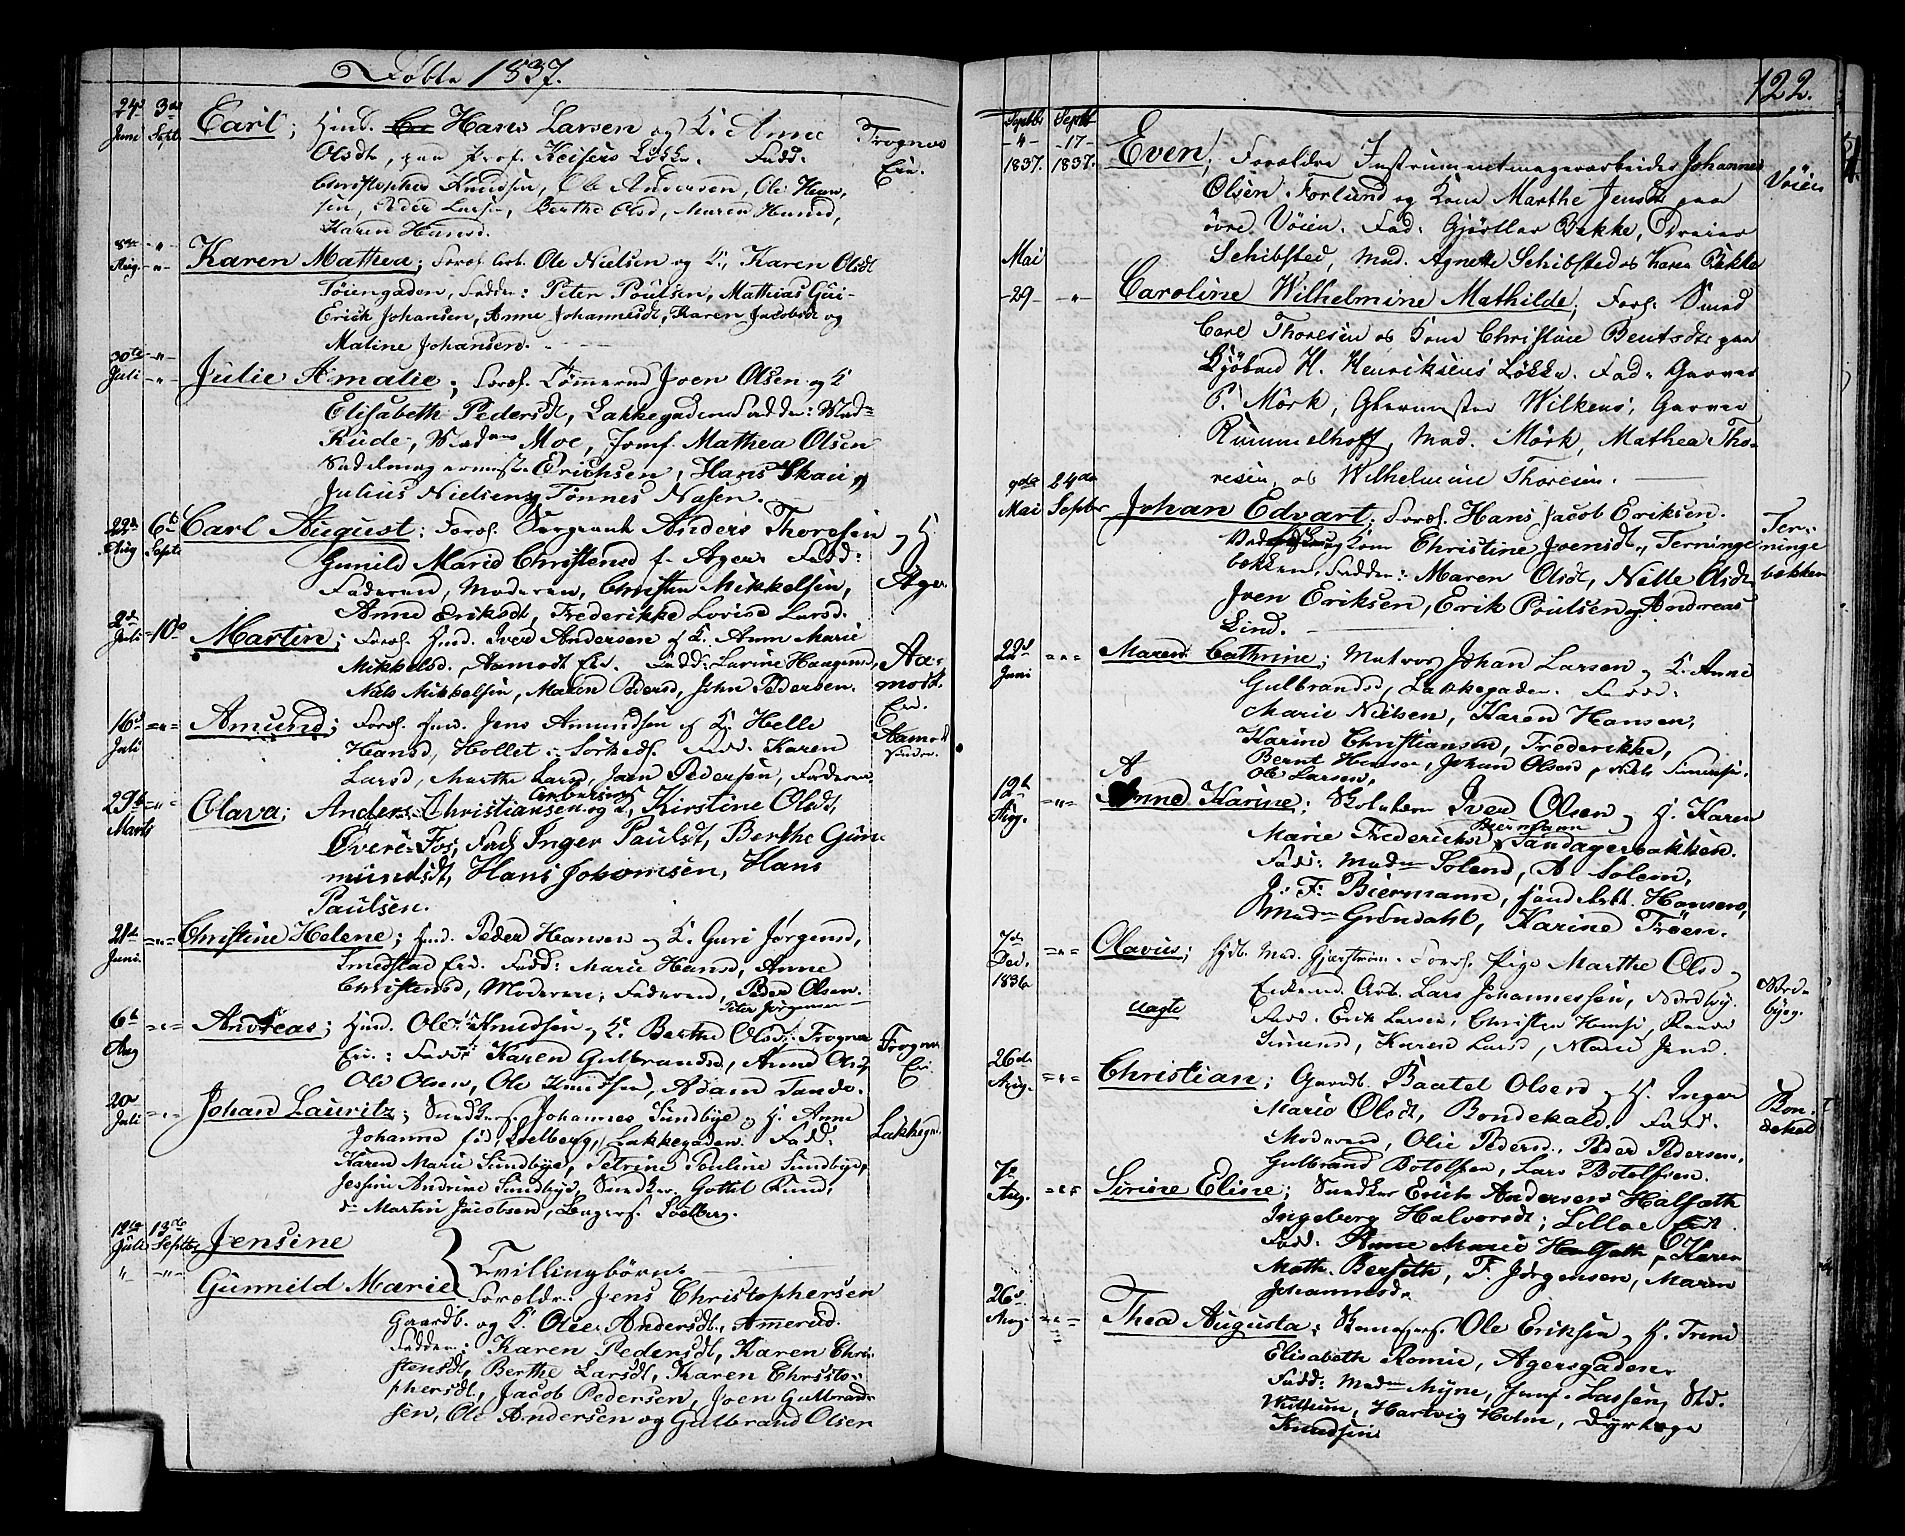 Døbte 1837.
24de 3die Carl; Huusd. Hans Larsen og K. Anne Frogner
Juni Septr Olsdt, paa Prof. Keisers Løkke. Fadd: Eie.
Christopher Knudsen, Ole Andersen, Ole Han-
sen, Peder Larsen, Berthe Olsd, Maren Hansd,
Karen Hansd.
8de Aug. Karen Mathea; Foræl. Arb. Ole Nielsen og K. Karen Olsdt
Tøiengaden, Fadder: Peter Poulsen, Mathias Gui-
Erick Johansen, Anne Johannesdt, Karen Jacobsdt og
Maline Johansen.
30te Juli Julie Amalie; Foræl. Tømmermd Joen Olsen og K
Elisabeth Pedersdt, Lakkegaden Fadder: Mad=
Rude, Mad Moe, Jomf. Mathea Olsen
Sadelmagermester Erichsen, Hans Skau og
Julius Nielsen, Tønnes Nasen.
22de 6te Carl August; Foræl. Sergeant Anders Thoresen og K.
Aug Septr Gunild Marie Christensd f. Ager Fadd: Ager
Faderen, Moderen, Christen Mikkelsen,
Anne Eriksdt, Frederikke Lovise Larsd.
2de Juli 10de Martin; Foræl. Huusd. Iver Andersen og K. Anne Marie
Mikkelsd. Aamodt Eie. Fadd: Larine Haagensd, Aa-
Niels Mikkelsen, Maren Pedersd, John Pedersen. modt Eie.
16de Juli Amund; Foræl. Huusd. Jens Amundsen og K. Helle Aamodt
Hansd, Hollet i Sørkeds. Fadd. Karen
Larsd, Marthe Larsd, Joen Pedersen, Faderen
29de Marts Olava; Anders Christiansen Arbeidsm og K. Kirstine Olsdt,
Øvre-Fos, Fad: Inger Paulsdt, Berthe Gun-
mundsdt, Hans Johannesen, Hans
Paulsen.
21de Juni Christine Helene; Huusd. Peder Hansen og K. Guri Jørgensd,
Smedstad Eie. Fadd: Marie Hansd, Anne
Christensd, Moderen, Faderen, Peder Olsen.
Peter Jørgensen
6te Aug Andreas; Huusd. Ole Knudsen og K. Berthe Olsd: Frogner Frogner
Eie.: Fadd: Karen Gulbrandsd, Anne Olsd, Ei.
Ole Olsen, Ole Knudsen, Adam Tande.
20de Juli Johan Lauritz; Snedkers. Johannes Sundbye og K. Anne
Johanne fød Soelberg, Lakkegaden. Fadd: Lakkegd.
Karen Marie Sundbye, Petrine Pauline Sundbye,
Jessine Andrine Sundbye, Snedker. Gottel Knud,
d= Martin Jacobsen, Soelberg.
12te 13de Jensine
Juli Septbr Gunnild Marie } Tvillingbørn.
Forældr: Jens Christophersen
Gaardb. og K. Olea Andersdt, Ammerud.
Fadder: Karen Pedersdt, Karen Chri-
stensdt, Berthe Larsdt, Karen Christo-
phersdt, Jacob Pedersen, Joen Gulbrand-
sen, Ole Andersen og Gulbrand Olsen
122.
Septbr Septbr
-4- -17- Even; Forældre Instrumentmagerarbeider Johannes
1837. 1837. Olsen Forlund og Kone Marthe Jensdt paa Vøien
øvre Vøien. Fad: Gjørtler Bekke, Dreier
Schibsted, Mad. Agnette Schibsted og Karen Bekke
Mai -29- Caroline Wilhelmine Mathilde; Foræl: Smed
Carl Thoresen og Kone Christine Bentsdt paa
Kjøbmd H. Henriksens Løkke. Fad: Garver
P. Mörk, Glarmester Wilkens, Garver
Rummelhoff, Mad. Mörk, Mathea Tho-
resen, og Wilhelmine Thoresen.
9de 24de
Mai Septbr Johan Edvart; Foræl. Hans Jacob Eriksen. Ter-
og Kone Christine Joensdt, Terninge- ninge
bækken, Fadder: Maren Olsdt, Nille Olsdt, bækken
Joen Eriksen, Erik Poulsen og Andreas
Lind.
22de Juni Maren Cathrine; Matros Johan Larsen og K. Anne
Gulbrandsd, Lakkegaden. Fadd:
Marie Nielsen, Karen Hansen,
Karine Christiansen, Frederikke,
Bernt Hansen, Johan Olsen, Niels Simensen.
Ole Larsen,
12te Aug. Anne Karine; Skoleh. Iver Olsen og K. Karen
Marie Frederiksd Biermann Sandagerbakken.
Fadd: Madm Solend, A Solem,
J. F. Biermann, Hansen,
Madm Grøndahl, Karine Trøen.
7de Dec. 1836. Olavus; hjdb. Mad. Gjerstrøm. Foræl. Pige Marthe Olsd og
uægte Enkemd. Arb. Lars Johannessen, Nordby. Nord-
Fadd. Erik Larsen, Christen Hansen, byeg.
Simensd, Karen Larsd, Marie Jensd.
26de Aug. Christian; Gaardb. Baatel Olsen og K. Inger
Marie Olsdt, Bondekald. Fadd. Bon-
Moderen, Olie Pedersd, Peder Pedersen, dekal
Gulbrand Botolfsen, Lars Botolfsen.
7de Aug. Sirine Eline; Snedker Erich Andersen Halseth
Ingeberg Halvorsdt; Lilloe Eie.
Fadd: Anne Marie, Karen
Math. Berseth, F. Jørgensen, Maren
Johannesd.
26de Aug. Thea Augusta; Ole Eriksen og K. Trine
Elisabeth Romie, Agersgaden.
Fadd: Madm Myne, Jomf. Lassen, Std.
Wilhelm, Hartvig Holm, Dyrlæge
Knudsen